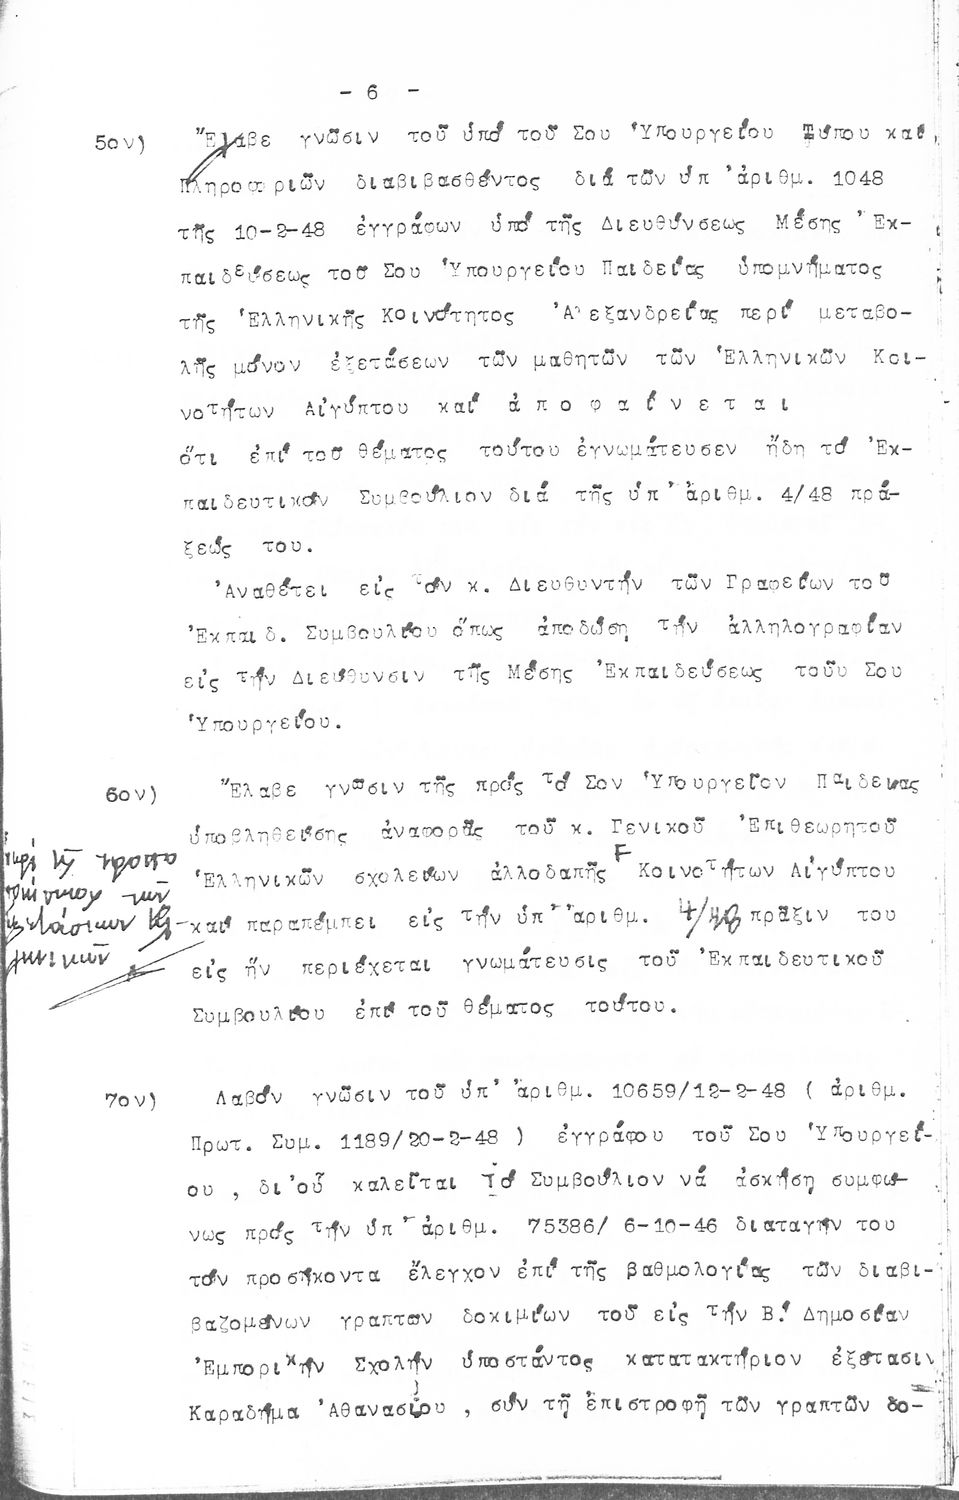 - 6 -
5ον) Ἔλαβε γνῶσιν τοῦ ὑπό τοῦ Σου Ὑπουργείου Τύπου καί
Πληροφοριῶν διαβιβασθέντος διά τῶν ὑπ' ἀριθμ. 1048
τῆς 10-2-48 ἐγγράφων ὑπό τῆς Διευθύνσεως Μέσης Ἐκ-
παιδεύσεως τοῦ Σου Ὑπουργείου Παιδείας ὑπομνήματος
τῆς Ἑλληνικῆς Κοινότητος Ἀλεξανδρείας περί μεταβο-
λῆς μόνον ἐξετάσεων τῶν μαθητῶν τῶν Ἑλληνικῶν Κοι-
νοτήτων Αἰγύπτου καί ἀ π ο φ α ί ν ε τ α ι
ὅτι ἐπί τοῦ θέματος τούτου ἐγνωμάτευσεν ἤδη τό Ἐκ-
παιδευτικόν Συμβούλιον διά τῆς ὑπ' ἀριθμ. 4/48 πρά-
ξεώς του.
Ἀναθέτει εἰς τόν κ. Διευθυντήν τῶν Γραφείων τοῦ
Ἐκπαιδ. Συμβουλίου ὅπως ἀποδώσῃ τήν ἀλληλογραφίαν
εἰς τήν Διεύθυνσιν τῆς Μέσης Ἐκπαιδεύσεως τοῦυ Σου
Ὑπουργείου.
6ον) Ἔλαβε γνῶσιν τῆς πρός τό Σον Ὑπουργεῖον Παιδείας
ὑποβληθείσης ἀναφορᾶς τοῦ κ. Γενικοῦ Ἐπιθεωρητοῦ
Ἑλληνικῶν σχολείων ἀλλοδαπῆς Κοινοτήτων Αἰγύπτου
καί παραπέμπει εἰς τήν ὑπ' ἀριθμ. 4/48 πρᾶξιν του
εἰς ἥν περιέχεται γνωμάτευσις τοῦ Ἐκπαιδευτικοῦ
Συμβουλίου ἐπί τοῦ θέματος τούτου.
7ον) Λαβόν γνῶσιν τοῦ ὑπ' ἀριθμ. 10659/12-2-48 ( ἀριθμ.
Πρωτ. Συμ. 1189/20-2-48 ) ἐγγράφου τοῦ Σου Ὑπουργεί-
ου , δι'οὗ καλεῖται τό Συμβούλιον νά ἀσκήσῃ συμφώ-
νως πρός τήν ὑπ' ἀριθμ. 75386/ 6-10-46 διαταγήν του
τόν προσήκοντα ἔλεγχον ἐπί τῆς βαθμολογίας τῶν διαβι-
βαζομένων γραπτῶν δοκιμίων τοῦ εἰς τήν Β! Δημοσίαν
Ἐμπορικήν Σχολήν ὑποστάντος κατατακτήριον ἐξέτασιν
Καραδήμα Ἀθανασίου , σύν τῇ ἐπιστροφῇ τῶν γραπτῶν δο-